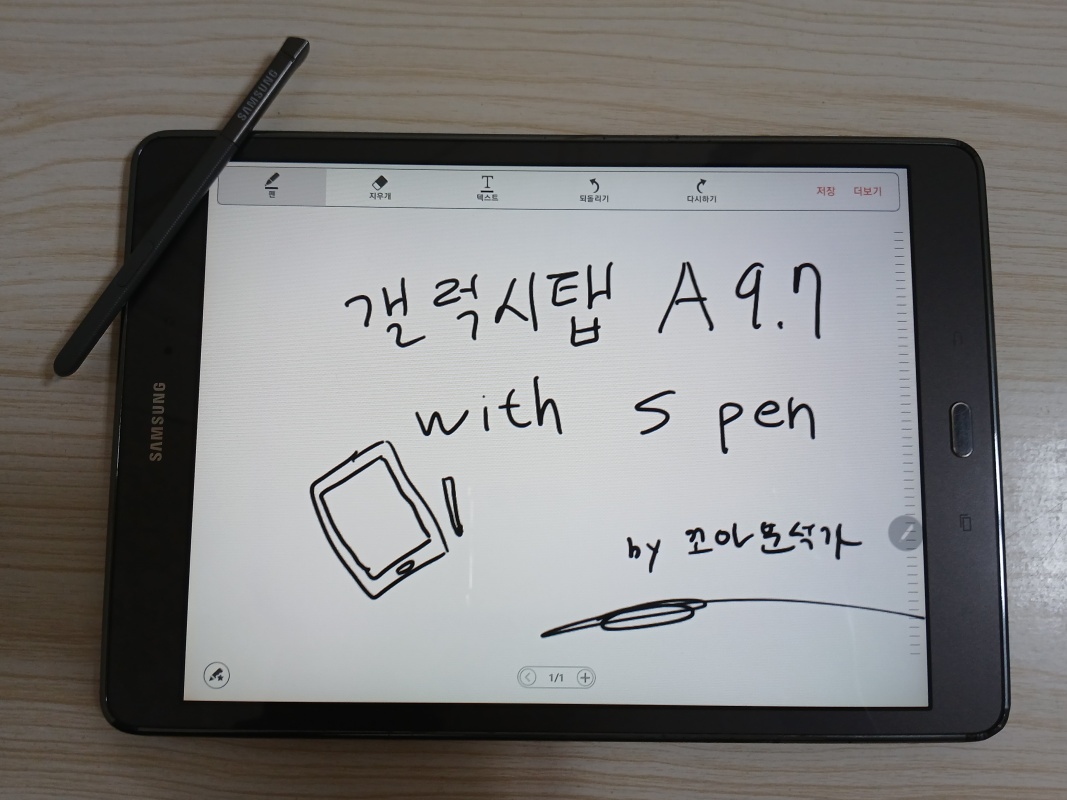 SAMSUNG
펜 지우개 텍스트 되돌리기 다시하기 저장 더보기
갤럭시탭 A 9.7
with S pen
SAMSUNG
by 꼬아분석가
1/1